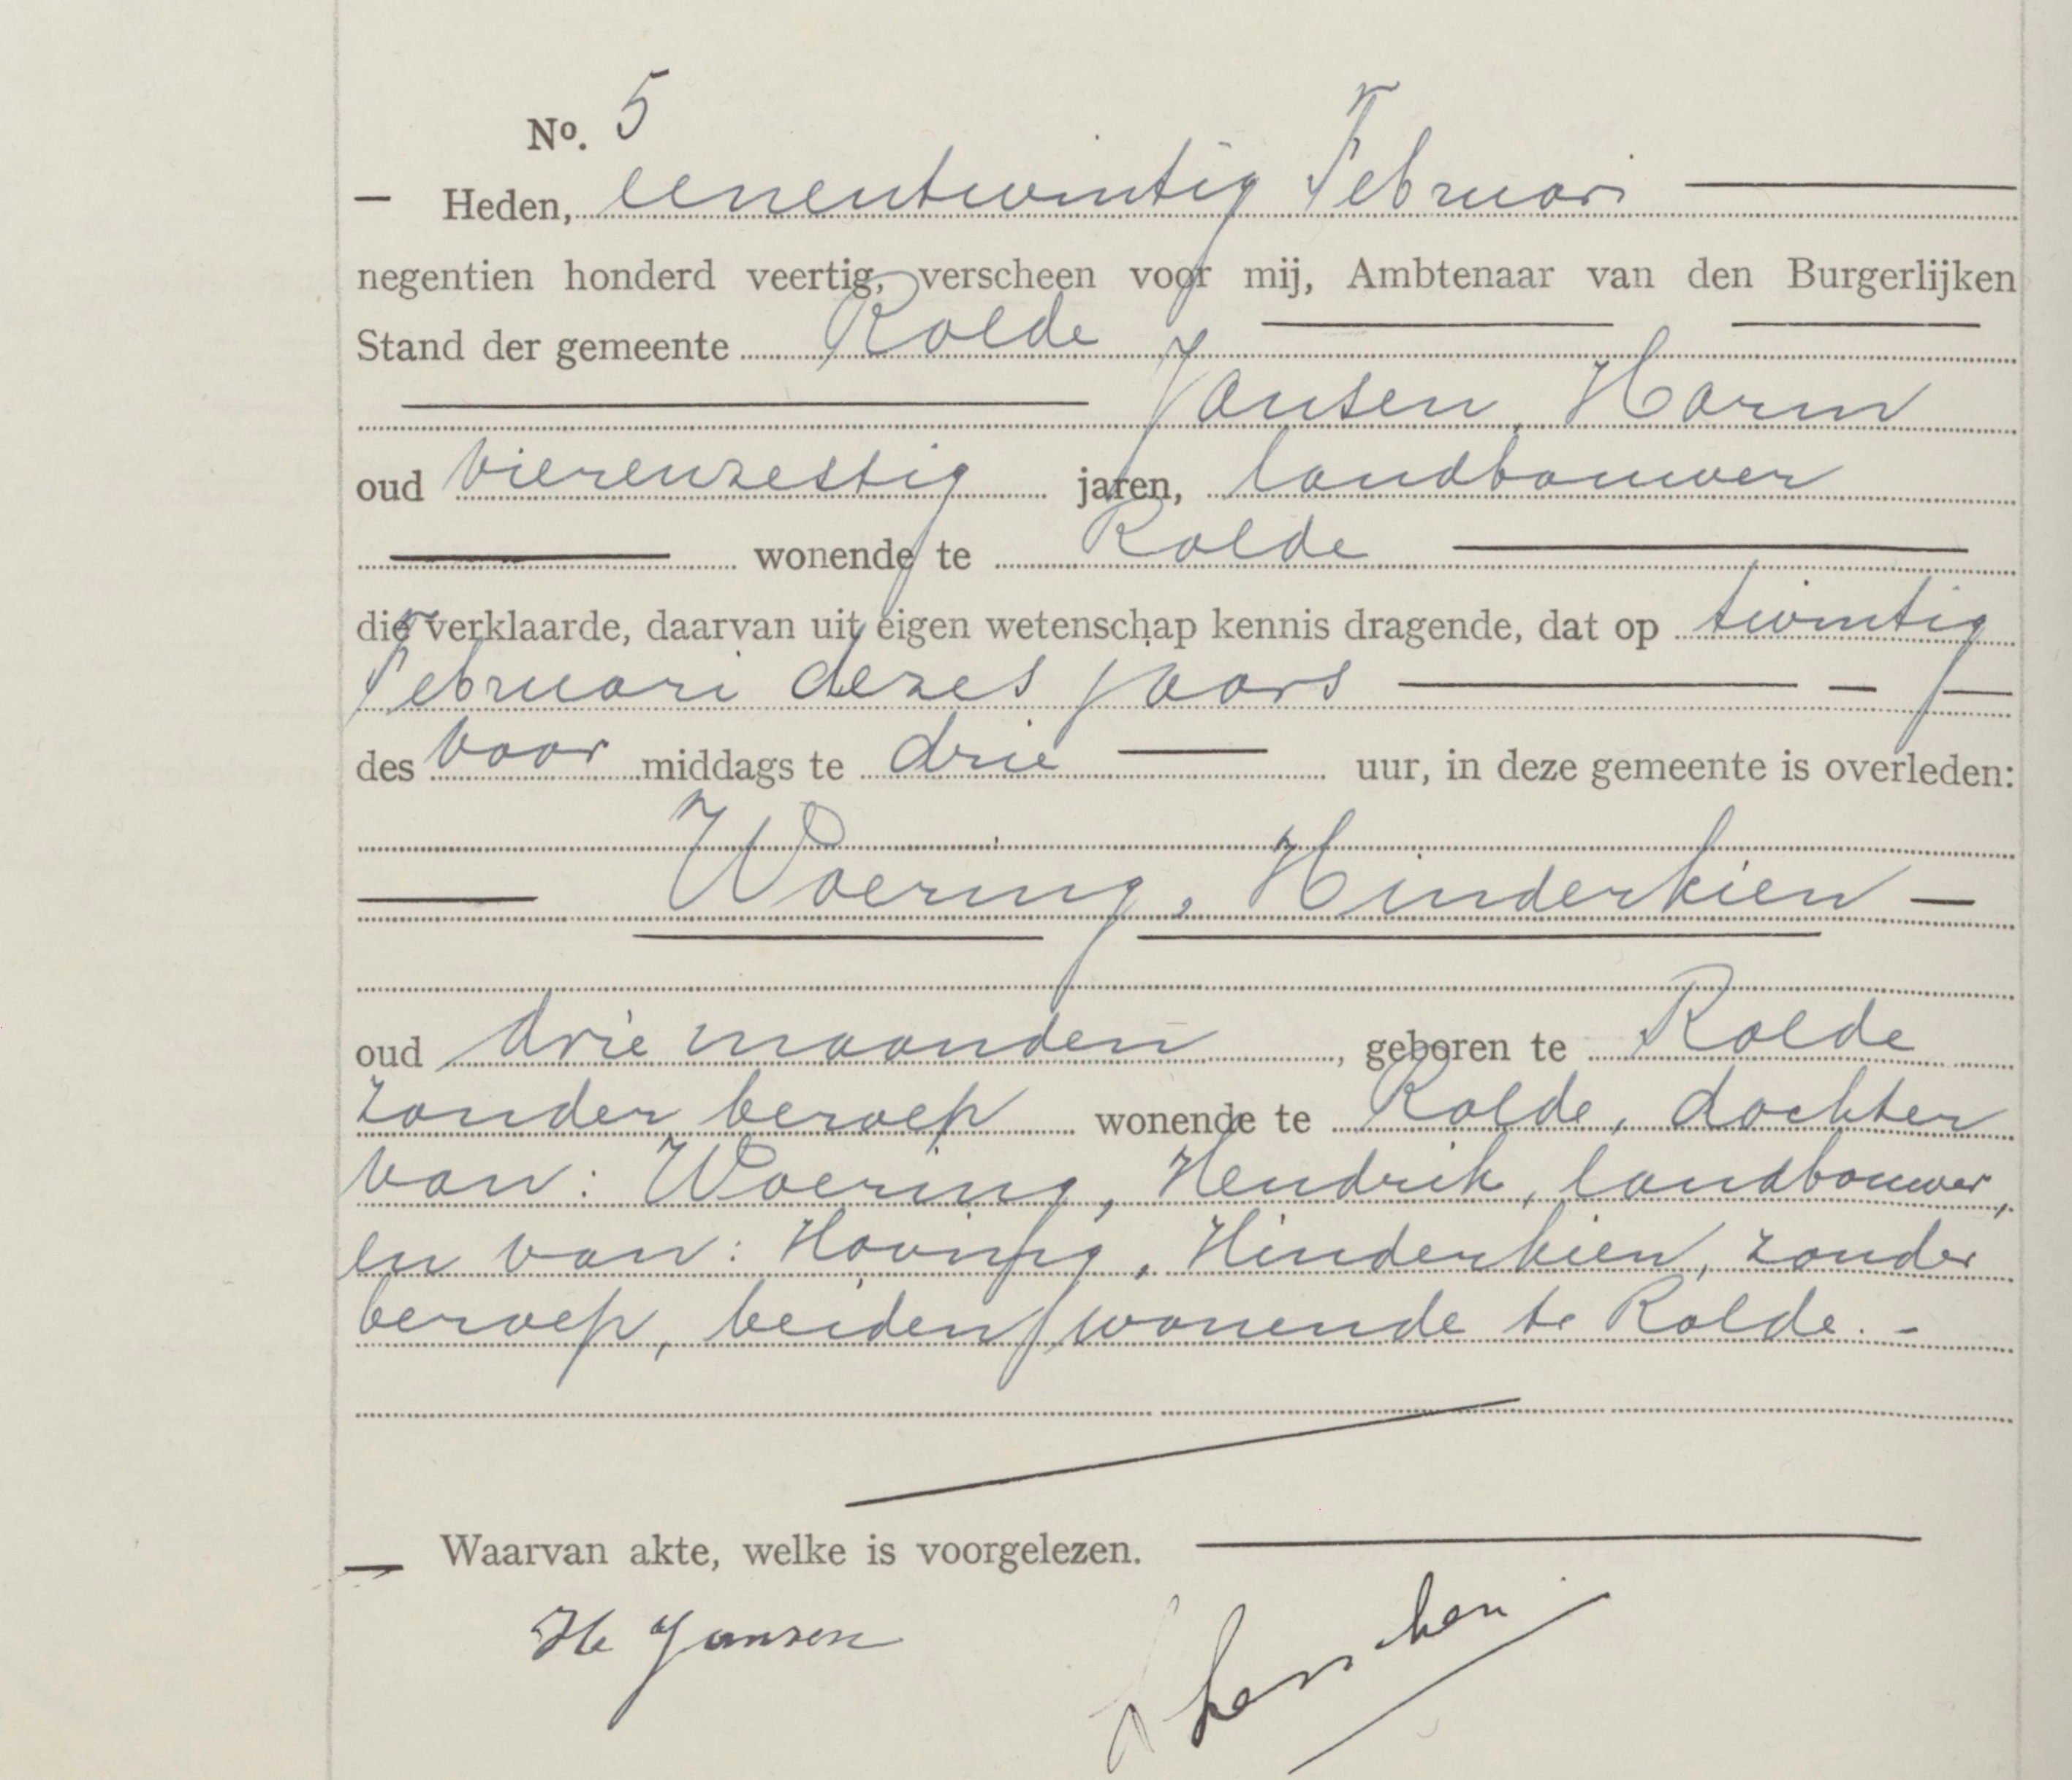 No. 5
— Heden, eenentwintig Februari —
negentien honderd veertig, verscheen voor mij, Ambtenaar van den Burgerlijken
Stand der gemeente Rolde
— Jansen, Harm
oud vierenzestig jaren, landbouwer
— wonende te Rolde —
die verklaarde, daarvan uit eigen wetenschap kennis dragende, dat op twintig
Februari dezes jaars — — —
des voor middags te drie — uur, in deze gemeente is overleden:
— Woering, Hinderkien —
oud drie maanden, geboren te Rolde
zonder beroep wonende te Rolde, dochter
van: Woering, Hendrik, landbouwer,
en van: Hoving, Hinderkien, zonder
beroep, beiden wonende te Rolde. -
— Waarvan akte, welke is voorgelezen. —
H Jansen